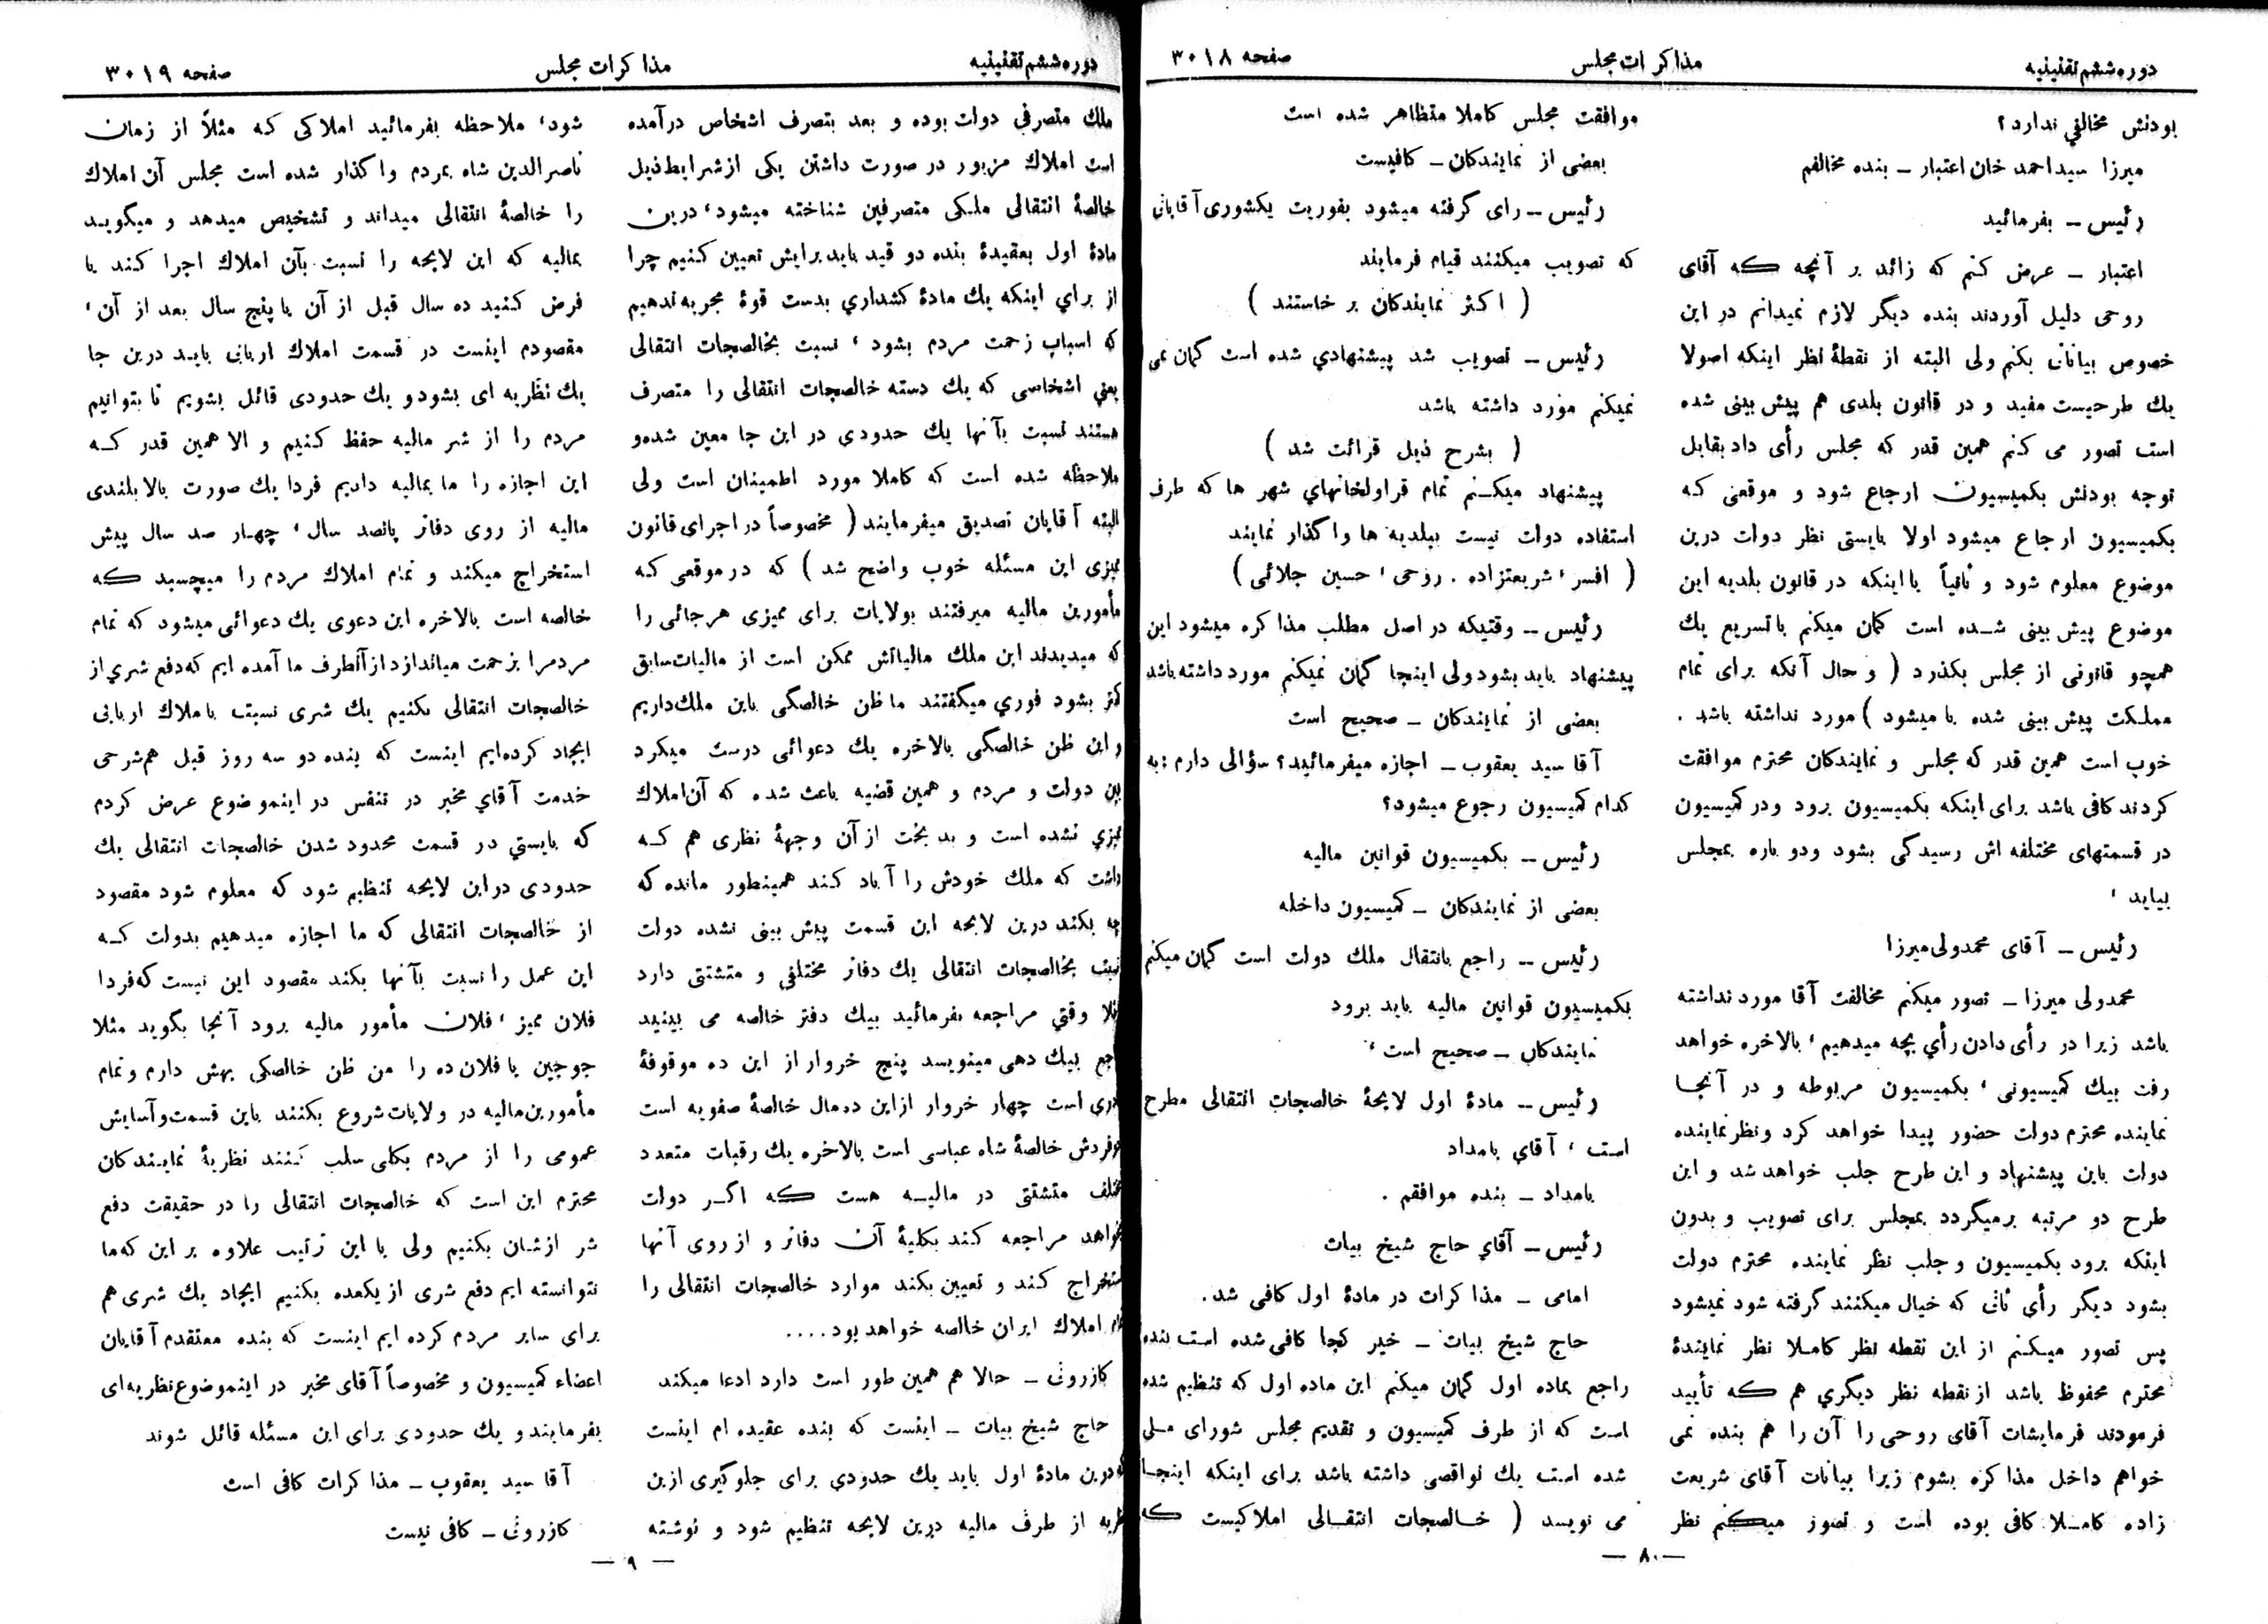 دوره ششم تقنینیه
مذاکرات مجلس
صفحه ۳۰۱۸
بودنش مخالفي ندارد؟
میرزا سیداحمد خان اعتبار ــ بنده مخالفم
رئیس ــ بفرمائید
اعتبار ــ عرض کنم که زائد بر آنچه که آقای
روحی دلیل آوردند بنده دیگر لازم نمیدانم در این
خصوص بیاناتی بکنم ولی البته از نقطهٔ نظر اینکه اصولا
یك طرحیست مفید و در قانون بلدی هم پیش بینی شده
است تصور می کنم همین قدر که مجلس رأی داد بقابل
توجه بودنش بکمیسیون ارجاع شود و موقعی که
بکمیسیون ارجاع میشود اولا بایستی نظر دولت درین
موضوع معلوم شود و ثانیاً با اینکه در قانون بلدیه این
موضوع پیش بینی شده است گمان میکنم با تسریع یك
همچو قانونی از مجلس بگذرد ( و حال آنکه برای تمام
مملکت پیش بینی شده یا میشود ) مورد نداشته باشد .
خوب است همین قدر که مجلس و نمایندگان محترم موافقت
کردند کافی باشد برای اینکه بکمیسیون برود ودر کمیسیون
در قسمتهای مختلفه اش رسیدگی بشود ودو باره بمجلس
بیاید ،
رئیس ــ آقای محمدولی میرزا
محمدولی میرزا ــ تصور میکنم مخالفت آقا مورد نداشته
باشد زیرا در رأی دادن رأي بچه میدهیم ، بالاخره خواهد
رفت بیك کمیسیونی ، بکمیسیون مربوطه و در آنجا
نماینده محترم دولت حضور پیدا خواهد کرد ونظر نماینده
دولت باین پیشنهاد و این طرح جلب خواهد شد و این
طرح دو مرتبه برمیگردد بمجلس برای تصویب و بدون
اینکه برود بکمیسیون و جلب نظر نماینده محترم دولت
بشود دیگر رأی ثانی که خیال میکنند گرفته شود نمیشود
پس تصور میکنم از این نقطه نظر کاملا نظر نمایندهٔ
محترم محفوظ باشد از نقطه نظر دیگري هم که تأیید
فرمودند فرمایشات آقای روحی را آن را هم بنده نمی
خواهم داخل مذاکره بشوم زیرا بیانات آقای شریعت
زاده کاملا کافی بوده است و تصور میکنم نظر
موافقت مجلس کاملا متظاهر شده است
بعضی از نمایندگان ــ کافیست
رئیس ــ رای گرفته میشود بفوریت یکشوری آقایانی
که تصویب میکنند قیام فرمایند
( اکثر نمایندگان بر خاستند )
رئیس ــ تصویب شد پیشنهادي شده است گمان نمی
نمیکنم مورد داشته باشد
( بشرح ذیل قرائت شد )
پیشنهاد میکنم تمام قراولخانهاي شهر ها که طرف
استفاده دولت نیست ببلدیه ها واگذار نمایند
( افسر ، شریعتزاده . روحی ، حسین جلائی )
رئیس ــ وقتیکه در اصل مطلب مذاکره میشود این
پیشنهاد باید بشود ولی اینجا گمان نمیکنم مورد داشته باشد
بعضی از نمایندگان ــ صحیح است
آقا سید یعقوب ــ اجازه میفرمائید؟ سؤالی دارم : به
کدام کمیسیون رجوع میشود؟
رئیس ــ بکمیسیون قوانین مالیه
بعضی از نمایندگان ــ کمیسیون داخله
رئیس ــ راجع بانتقال ملك دولت است گمان میکنم
بکمیسیون قوانین مالیه باید برود
نمایندگان ــ صحیح است ،
رئیس ــ مادهٔ اول لایحهٔ خالصجات انتقالی مطرح
است ، آقاي بامداد
بامداد ــ بنده موافقم .
رئیس ــ آقاي حاج شیخ بیات
امامی ــ مذاکرات در مادهٔ اول کافی شد.
حاج شیخ بیات ــ خیر کجا کافی شده است بنده
راجع بماده اول گمان میکنم این ماده اول که تنظیم شده
است که از طرف کمیسیون و تقدیم مجلس شورای ملی
شده است یك نواقصی داشته باشد برای اینکه اینجا
می نویسد ( خالصجات انتقالی املاکیست که
ــ ۸۰ ــ
دوره ششم تقنینیه
مذاکرات مجلس
صفحه ۳۰۱۹
ملك متصرفي دولت بوده و بعد بتصرف اشخاص درآمده
است املاك مزبور در صورت داشتن یکی از شرایط ذیل
خالصهٔ انتقالی ملکی متصرفین شناخته میشود ، درین
مادهٔ اول بعقیدهٔ بنده دو قید باید برایش تعیین کنیم چرا
از براي اینکه یك مادهٔ کشداري بدست قوهٔ مجریه ندهیم
که اسباب زحمت مردم بشود ، نسبت بخالصجات انتقالی
یعني اشخاصی که یك دسته خالصجات انتقالی را متصرف
هستند نسبت بآنها یك حدودي در این جا معین شده و
ملاحظه شده است که کاملا مورد اطمینان است ولی
البته آقایان تصدیق میفرمایند ( مخصوصاً در اجرای قانون
ممیزی این مسئله خوب واضح شد ) که در موقعی که
مأمورین مالیه میرفتند بولایات برای ممیزی هرجائی را
که میدیدند این ملك مالیاتش ممکن است از مالیات سابق
کمتر بشود فوري میگفتند ما ظن خالصگی باین ملك داریم
و این ظن خالصگی بالاخره یك دعوائی درست میکرد
بین دولت و مردم و همین قضیه باعث شده که آن املاك
ممیزي نشده است و بد بخت از آن وجههٔ نظری هم که
داشت که ملك خودش را آباد کند همینطور مانده که
چه بکند درین لایحه این قسمت پیش بینی نشده دولت
نسبت بخالصجات انتقالی یك دفاتر مختلفي و متشتتی دارد
مثلا وقتي مراجعه بفرمائید بیك دفتر خالصه می بینید
راجع بیك دهی مینویسد پنج خروار از این ده موقوفهٔ
است چهار خروار ازاین ده مال خالصهٔ صفویه است
خالصهٔ شاه عباسی است بالاخره یك رقبات متعدد
مختلف متشتتی در مالیه هست که اگر دولت
بخواهد مراجعه کند بکلیهٔ آن دفاتر و از روی آنها
استخراج کند و تعیین بکند موارد خالصجات انتقالی را
تمام املاك ایران خالصه خواهد بود....
کازرونی ــ حالا هم همین طور است دارد ادعا میکند
حاج شیخ بیات ــ اینست که بنده عقیده ام اینست
که درین مادهٔ اول باید یك حدودي برای جلوگیری ازین
نظریه از طرف مالیه درین لایحه تنظیم شود و نوشته
شود ، ملاحظه بفرمائید املاکی که مثلاً از زمان
ناصرالدین شاه بمردم واگذار شده است مجلس آن املاك
را خالصهٔ انتقالی میداند و تشخیص میدهد و میگوید
بمالیه که این لایحه را نسبت بآن املاك اجرا کند یا
فرض کنید ده سال قبل از آن یا پنج سال بعد از آن ،
مقصودم اینست در قسمت املاك اربابی باید درین جا
یك نظریه ای بشود و یك حدودی قائل بشویم تا بتوانیم
مردم را از شر مالیه حفظ کنیم و الا همین قدر که
این اجازه را ما بمالیه دادیم فردا یك صورت بالا بلندی
مالیه از روی دفاتر پانصد سال ، چهار صد سال پیش
استخراج میکند و تمام املاك مردم را میچسبد که
خالصه است بالاخره این دعوی یك دعوائی میشود که تمام
مردم را بزحمت میاندازد از آنطرف ما آمده ایم که دفع شري از
خالصجات انتقالی بکنیم یك شری نسبت باملاك اربابی
ایجاد کرده‌ایم اینست که بنده دو سه روز قبل هم شرحی
خدمت آقاي مخبر در تنفس در اینموضوع عرض کردم
که بایستي در قسمت محدود شدن خالصجات انتقالی یك
حدودی در این لایحه تنظیم شود که معلوم شود مقصود
از خالصجات انتقالی که ما اجازه میدهیم بدولت که
این عمل را نسبت بآنها بکند مقصود این نیست که فردا
فلان ممیز ، فلان مأمور مالیه برود آنجا بگوید مثلا
جوجین یا فلان ده را من ظن خالصکی بهش دارم و تمام
مأمورین مالیه در ولایات شروع بکنند باین قسمت و آسایش
عمومی را از مردم بکلی سلب کنند نظریهٔ نمایندگان
محترم این است که خالصجات انتقالی را در حقیقت دفع
شر ازشان بکنیم ولی با این ترتیب علاوه بر این که ما
نتوانسته ایم دفع شری از یکعده بکنیم ایجاد یك شری هم
برای سایر مردم کرده ایم اینست که بنده معتقدم آقایان
اعضاء کمیسیون و مخصوصاً آقای مخبر در اینموضوع نظریه‌ای
بفرمایند و یك حدودی برای این مسئله قائل شوند
آقا سید یعقوب ــ مذاکرات کافی است
کازرونی ــ کافی نیست
ــ ۹ ــ